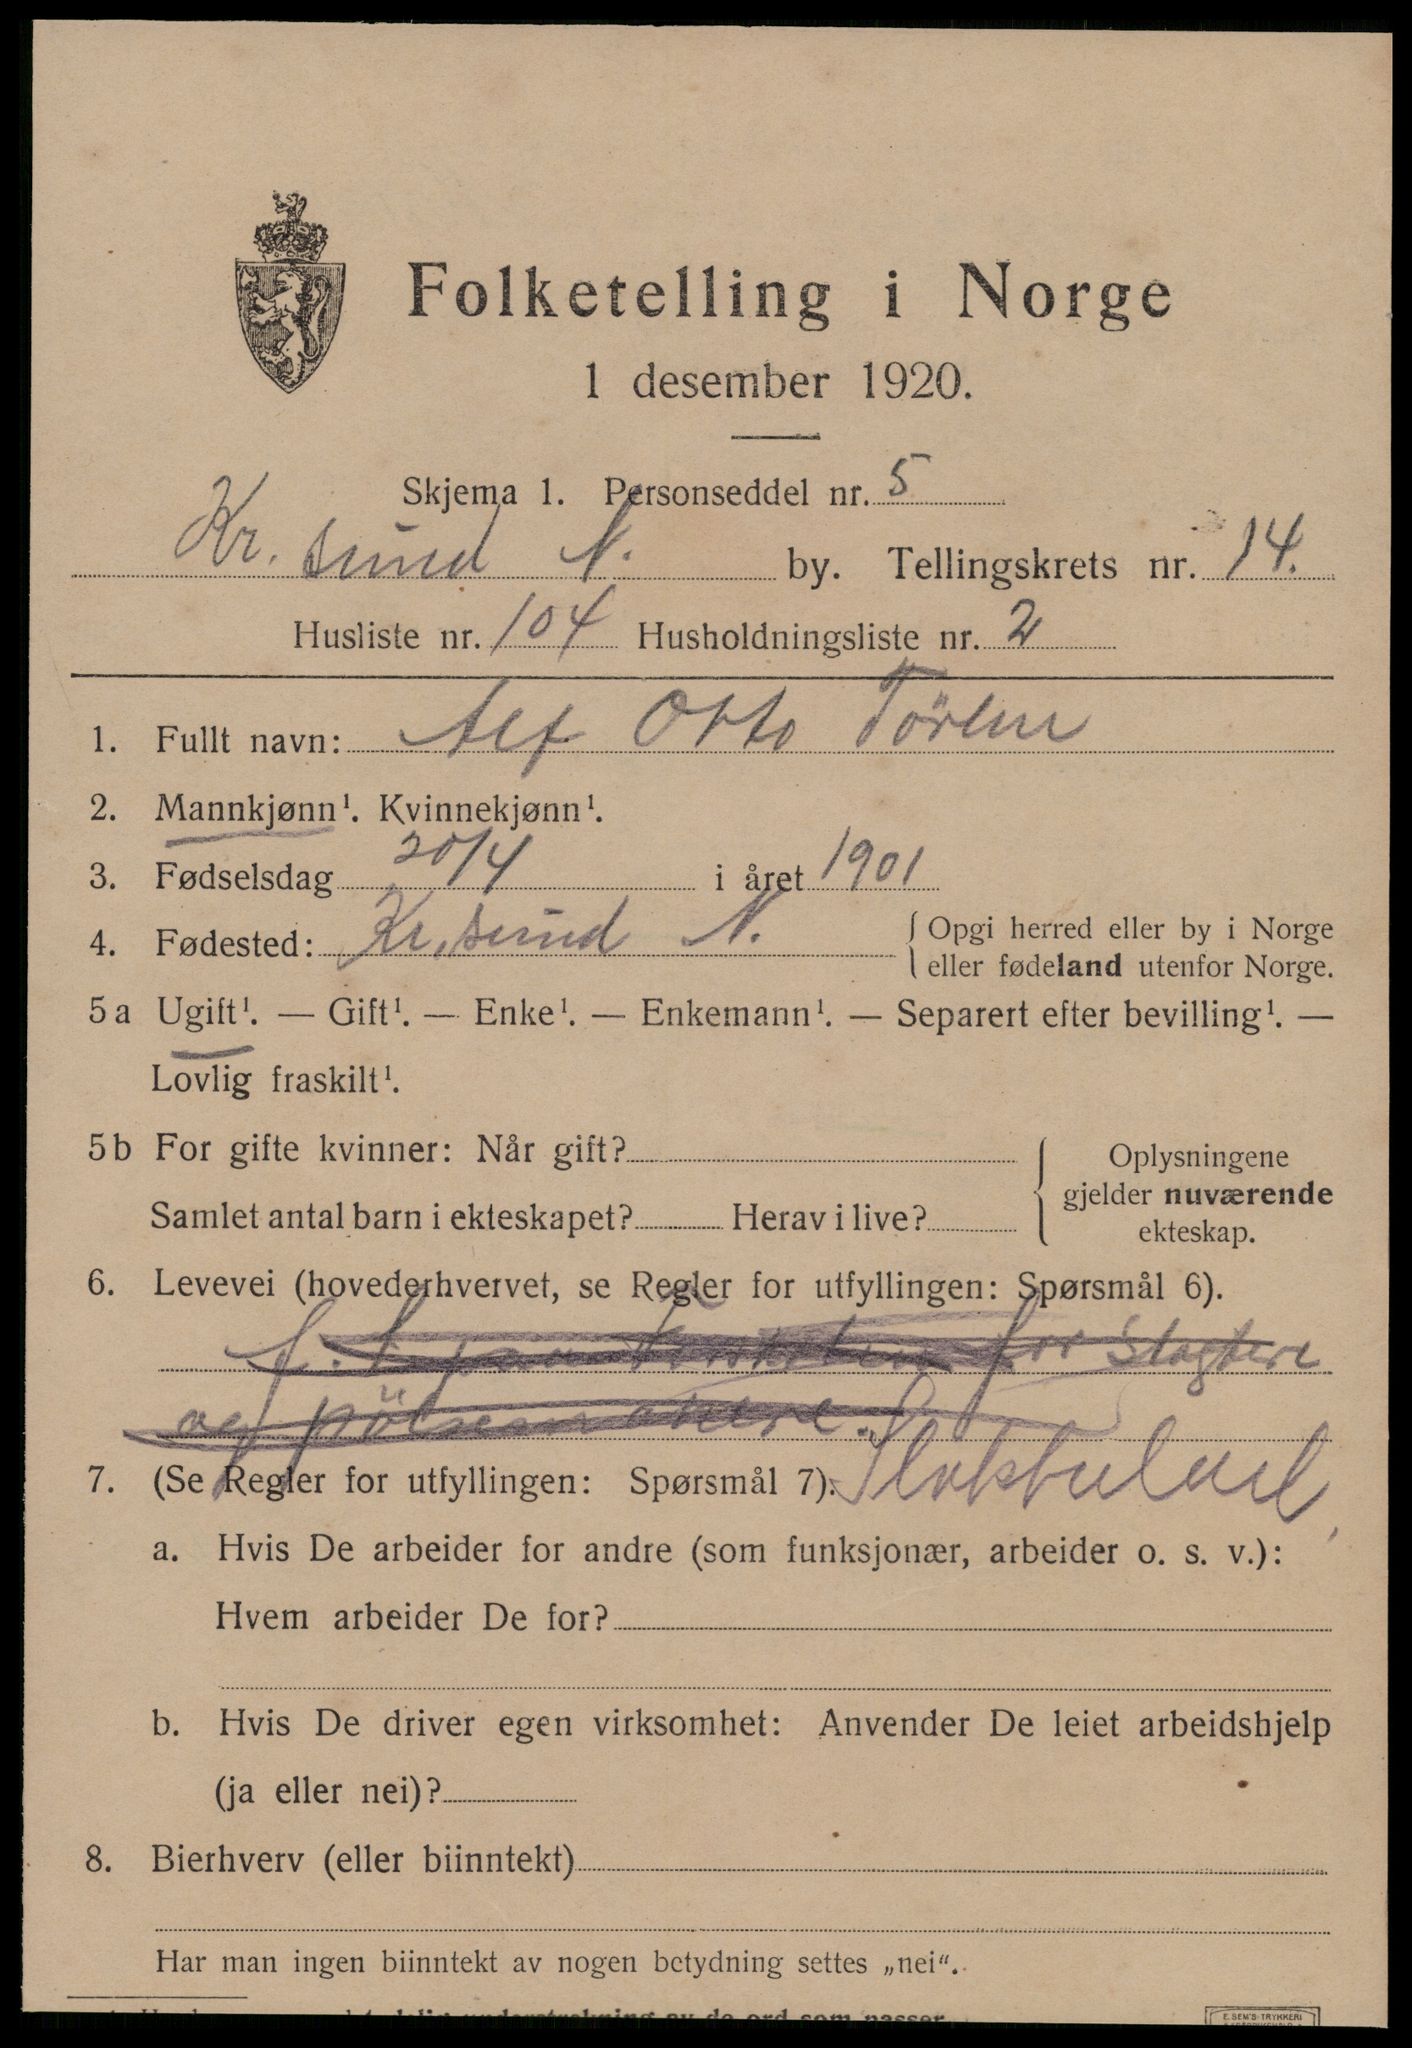 Folketelling i Norge
1 desember 1920.
Skjema 1. Personseddel nr. 5
Kr. sund N. by. Tellingskrets nr. 14.
Husliste nr. 104 Husholdningsliste nr. 2
1. Fullt navn: Alf Otto
2. Mannkjønn¹. Kvinnekjønn¹.
3. Fødselsdag 20/4 i året 1901
4. Fødested: Kr. sund N. { Opgi herred eller by i Norge
eller fødeland utenfor Norge.
5 a Ugift¹. — Gift¹. — Enke¹. — Enkemann¹. — Separert efter bevilling¹. —
Lovlig fraskilt¹.
5 b For gifte kvinner: Når gift? { Oplysningene
gjelder nuværende
ekteskap.
Samlet antal barn i ekteskapet? Herav i live?
6. Levevei (hovederhvervet, se Regler for utfyllingen: Spørsmål 6).
for Slagtere
og pölsemakere.
7. (Se Regler for utfyllingen: Spørsmål 7).
a. Hvis De arbeider for andre (som funksjonær, arbeider o. s. v.):
Hvem arbeider De for?
b. Hvis De driver egen virksomhet: Anvender De leiet arbeidshjelp
(ja eller nei)?
8. Bierhverv (eller biinntekt)
Har man ingen biinntekt av nogen betydning settes „nei".
av de ord som passer.
E. SEM'S TRYKKERI